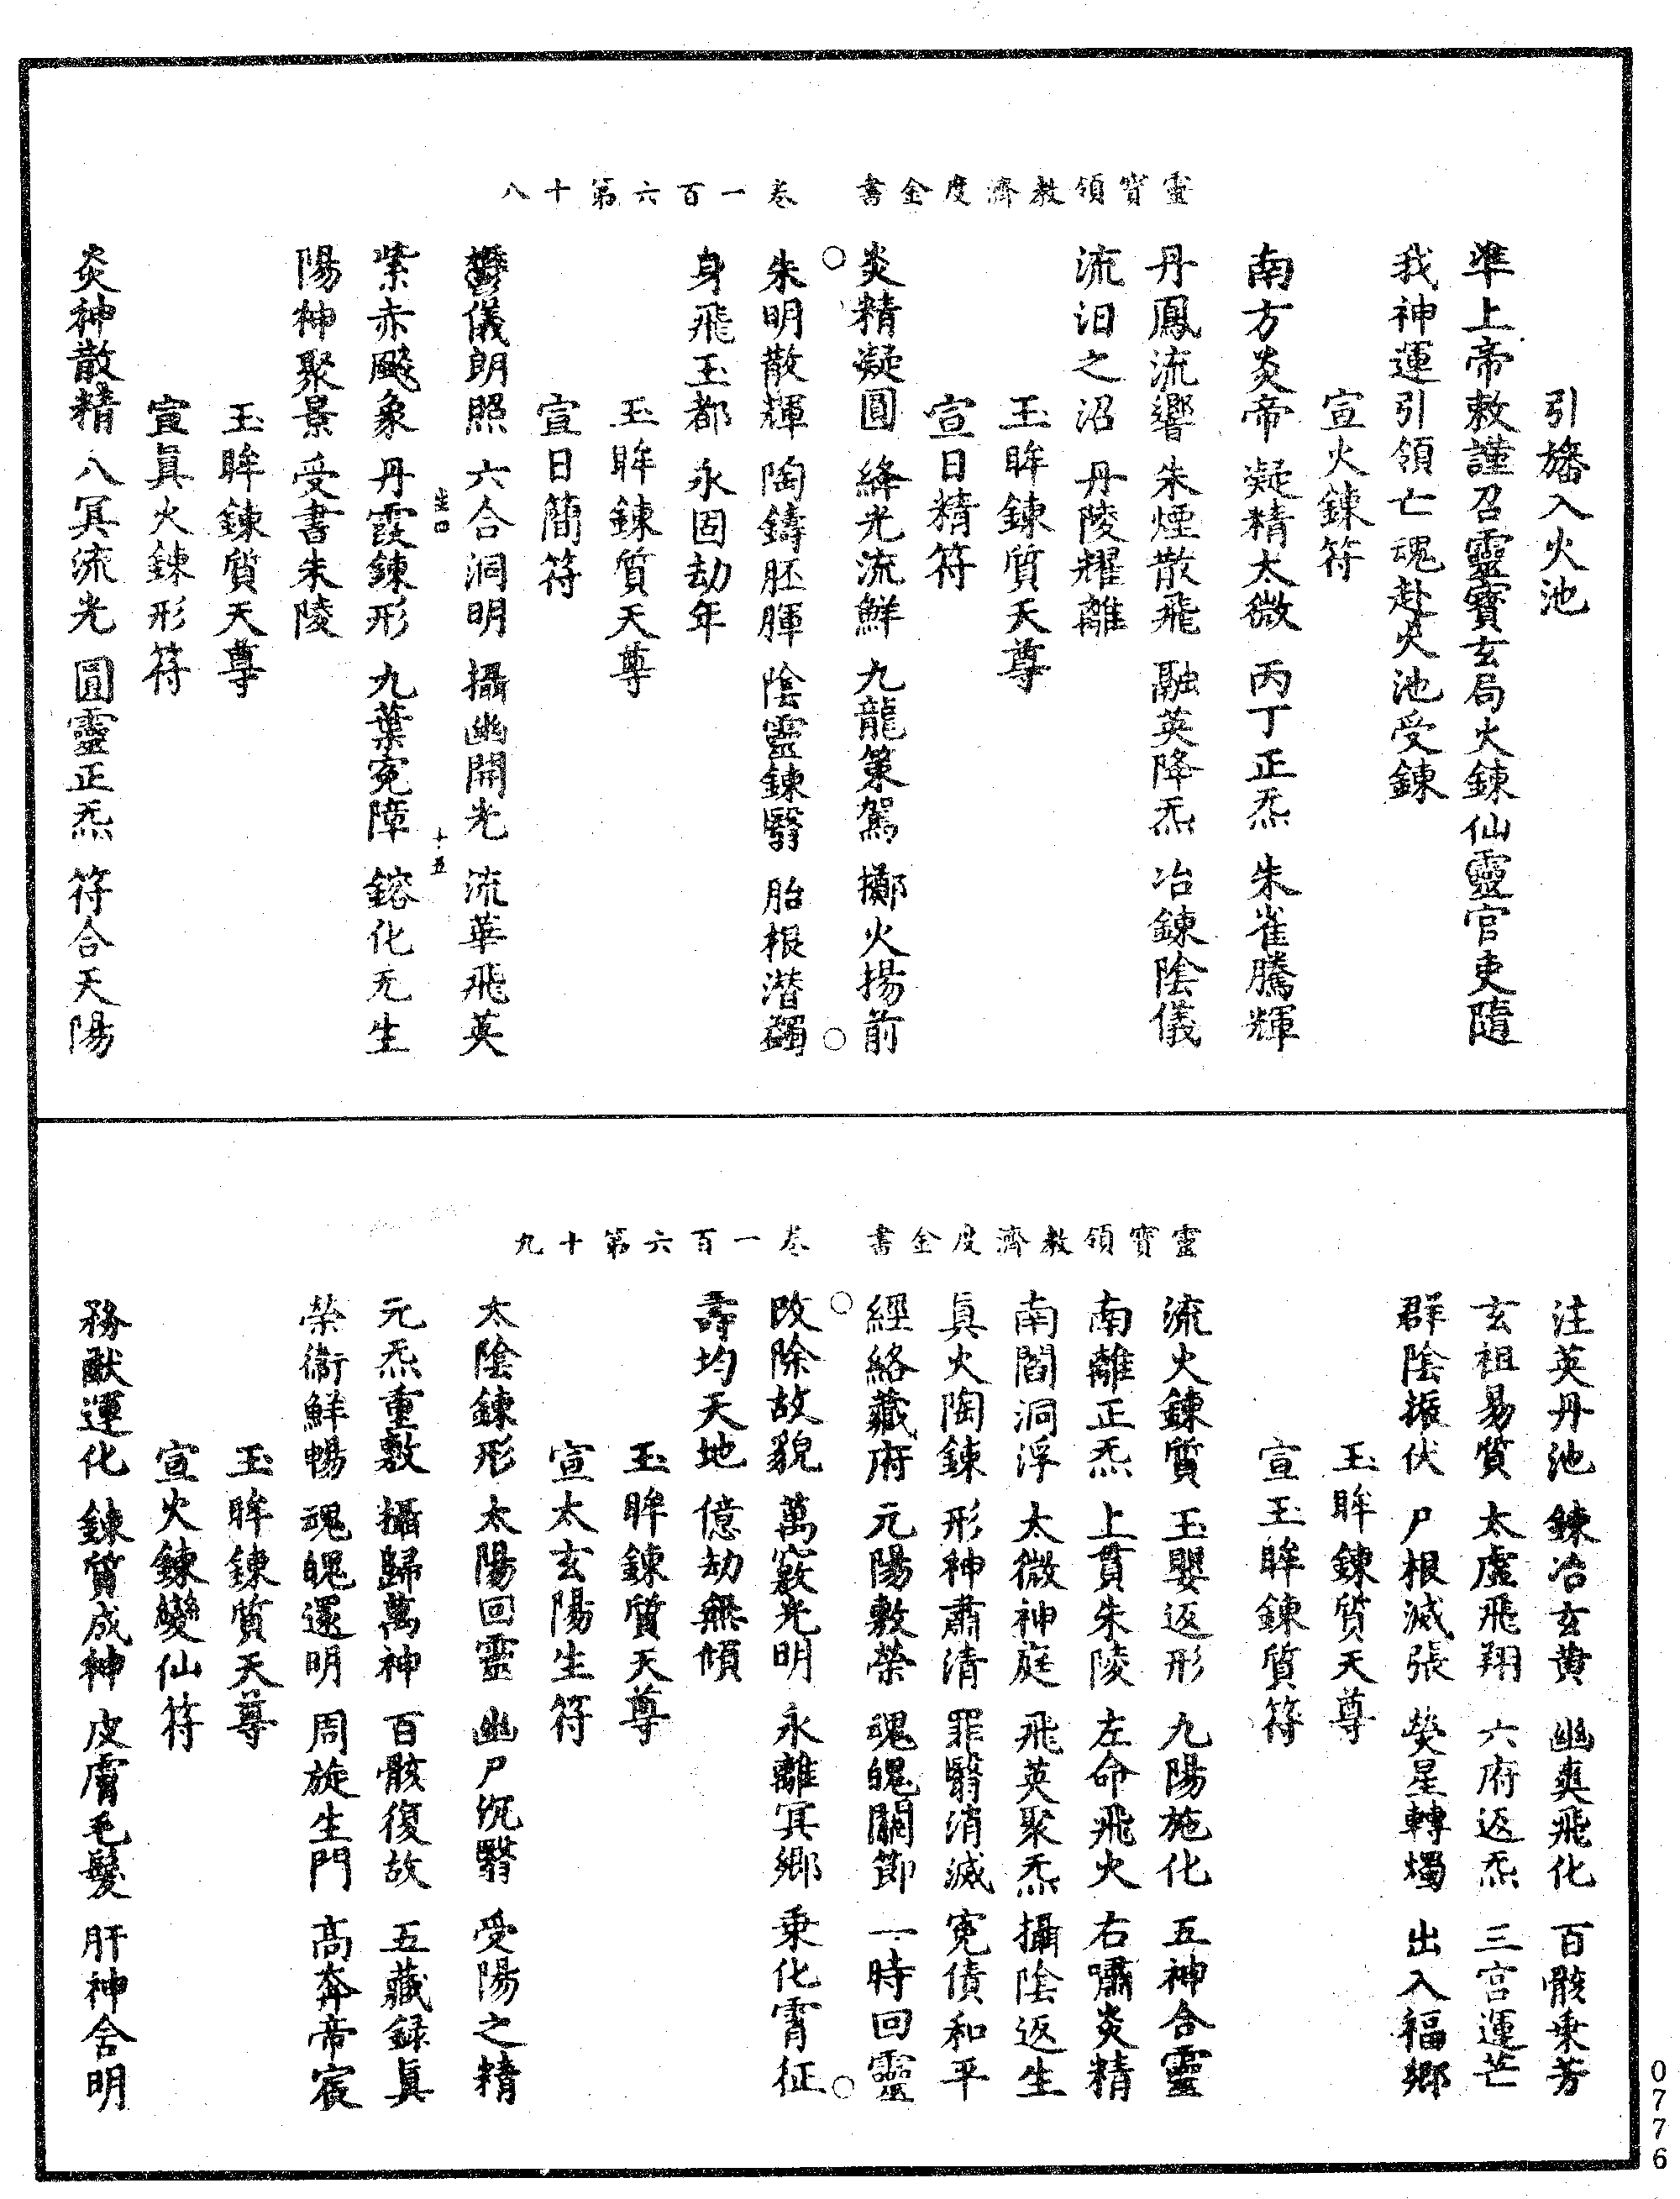 靈寶領教濟度金書　卷一百六第十八
引旛入火池
準上帝敕謹召靈寶玄局火鍊仙靈官吏隨
我神運引領亡魂赴火池受鍊
宣火鍊符
南方炎帝　凝精太微　丙丁正炁　朱雀騰輝
丹鳳流響　朱煙散飛　融英降炁　冶鍊陰儀
流汨之沼　丹陵耀離
玉眸鍊質天尊
宣日精符
炎精凝圓　絳光流鮮　九龍策駕　擲火揚前
朱明散輝　陶鑄胚腪　陰靈鍊翳　胎根潛蠲
身飛玉都　永固劫年
玉眸鍊質天尊
宣日簡符
鬱儀朗照　六合洞明　攝幽開光　流華飛英
紫赤飈象　丹霞鍊形　九葉冤障　鎔化无生
陽神聚景　受書朱陵
玉眸鍊質天尊
宣眞火鍊形符
炎神散精　八冥流光　圓靈正炁　符合天陽
靈寶領教濟度金書　卷一百六第十九
注英丹池　鍊冶玄黄　幽爽飛化　百骸乗芳
玄祖易質　太虛飛翔　六府返炁　三宫運芒
群陰振伏　尸根滅張　熒星轉燭　出入福鄉
玉眸鍊質天尊
宣玉眸鍊質符
流火鍊質　玉嬰返形　九陽施化　五神合靈
南離正炁　上貫朱陵　左命飛火　右嘯炎精
南閻洞浮　太微神庭　飛英聚炁　攝陰返生
眞火陶鍊　形神肅清　罪翳消滅　寃債和平
經絡藏府　元陽敷榮　魂魄關節　一時回靈
改除故貌　萬竅光明　永離冥鄉　乗化霄征
壽均天地　億劫無傾
玉眸鍊質天尊
宣太玄陽生符
太陰鍊形　太陽回靈　幽尸沉翳　受陽之精
元炁重敷　攝歸萬神　百骸復故　五藏録眞
榮衞鮮暢　魂魄還明　周旋生門　高奔帝宸
玉眸鍊質天尊
宣火鍊變仙符
務猷運化　鍊質成神　皮膚毛髮　肝神舍明
0776